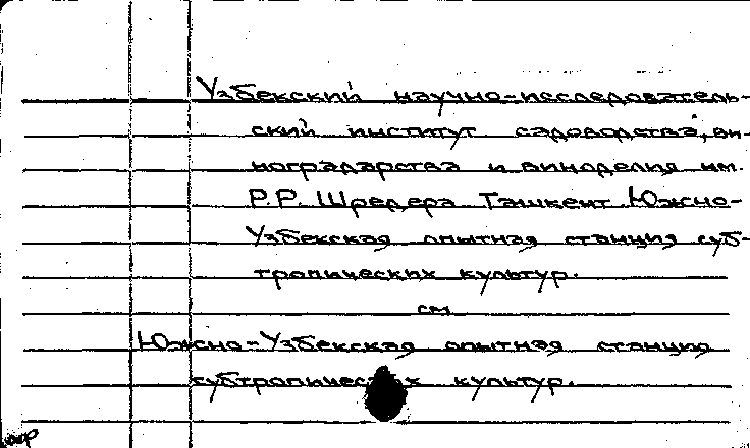 Узбекский научно-исследователь-
ский институт садоводства, ви-
ноградарства и виноделия им.
Р.Р. Шредера Ташкент. Южно-
Узбекская опытная станция суб-
тропических культур.
см
Южно-Узбекская опытная станция
субтропических культур.